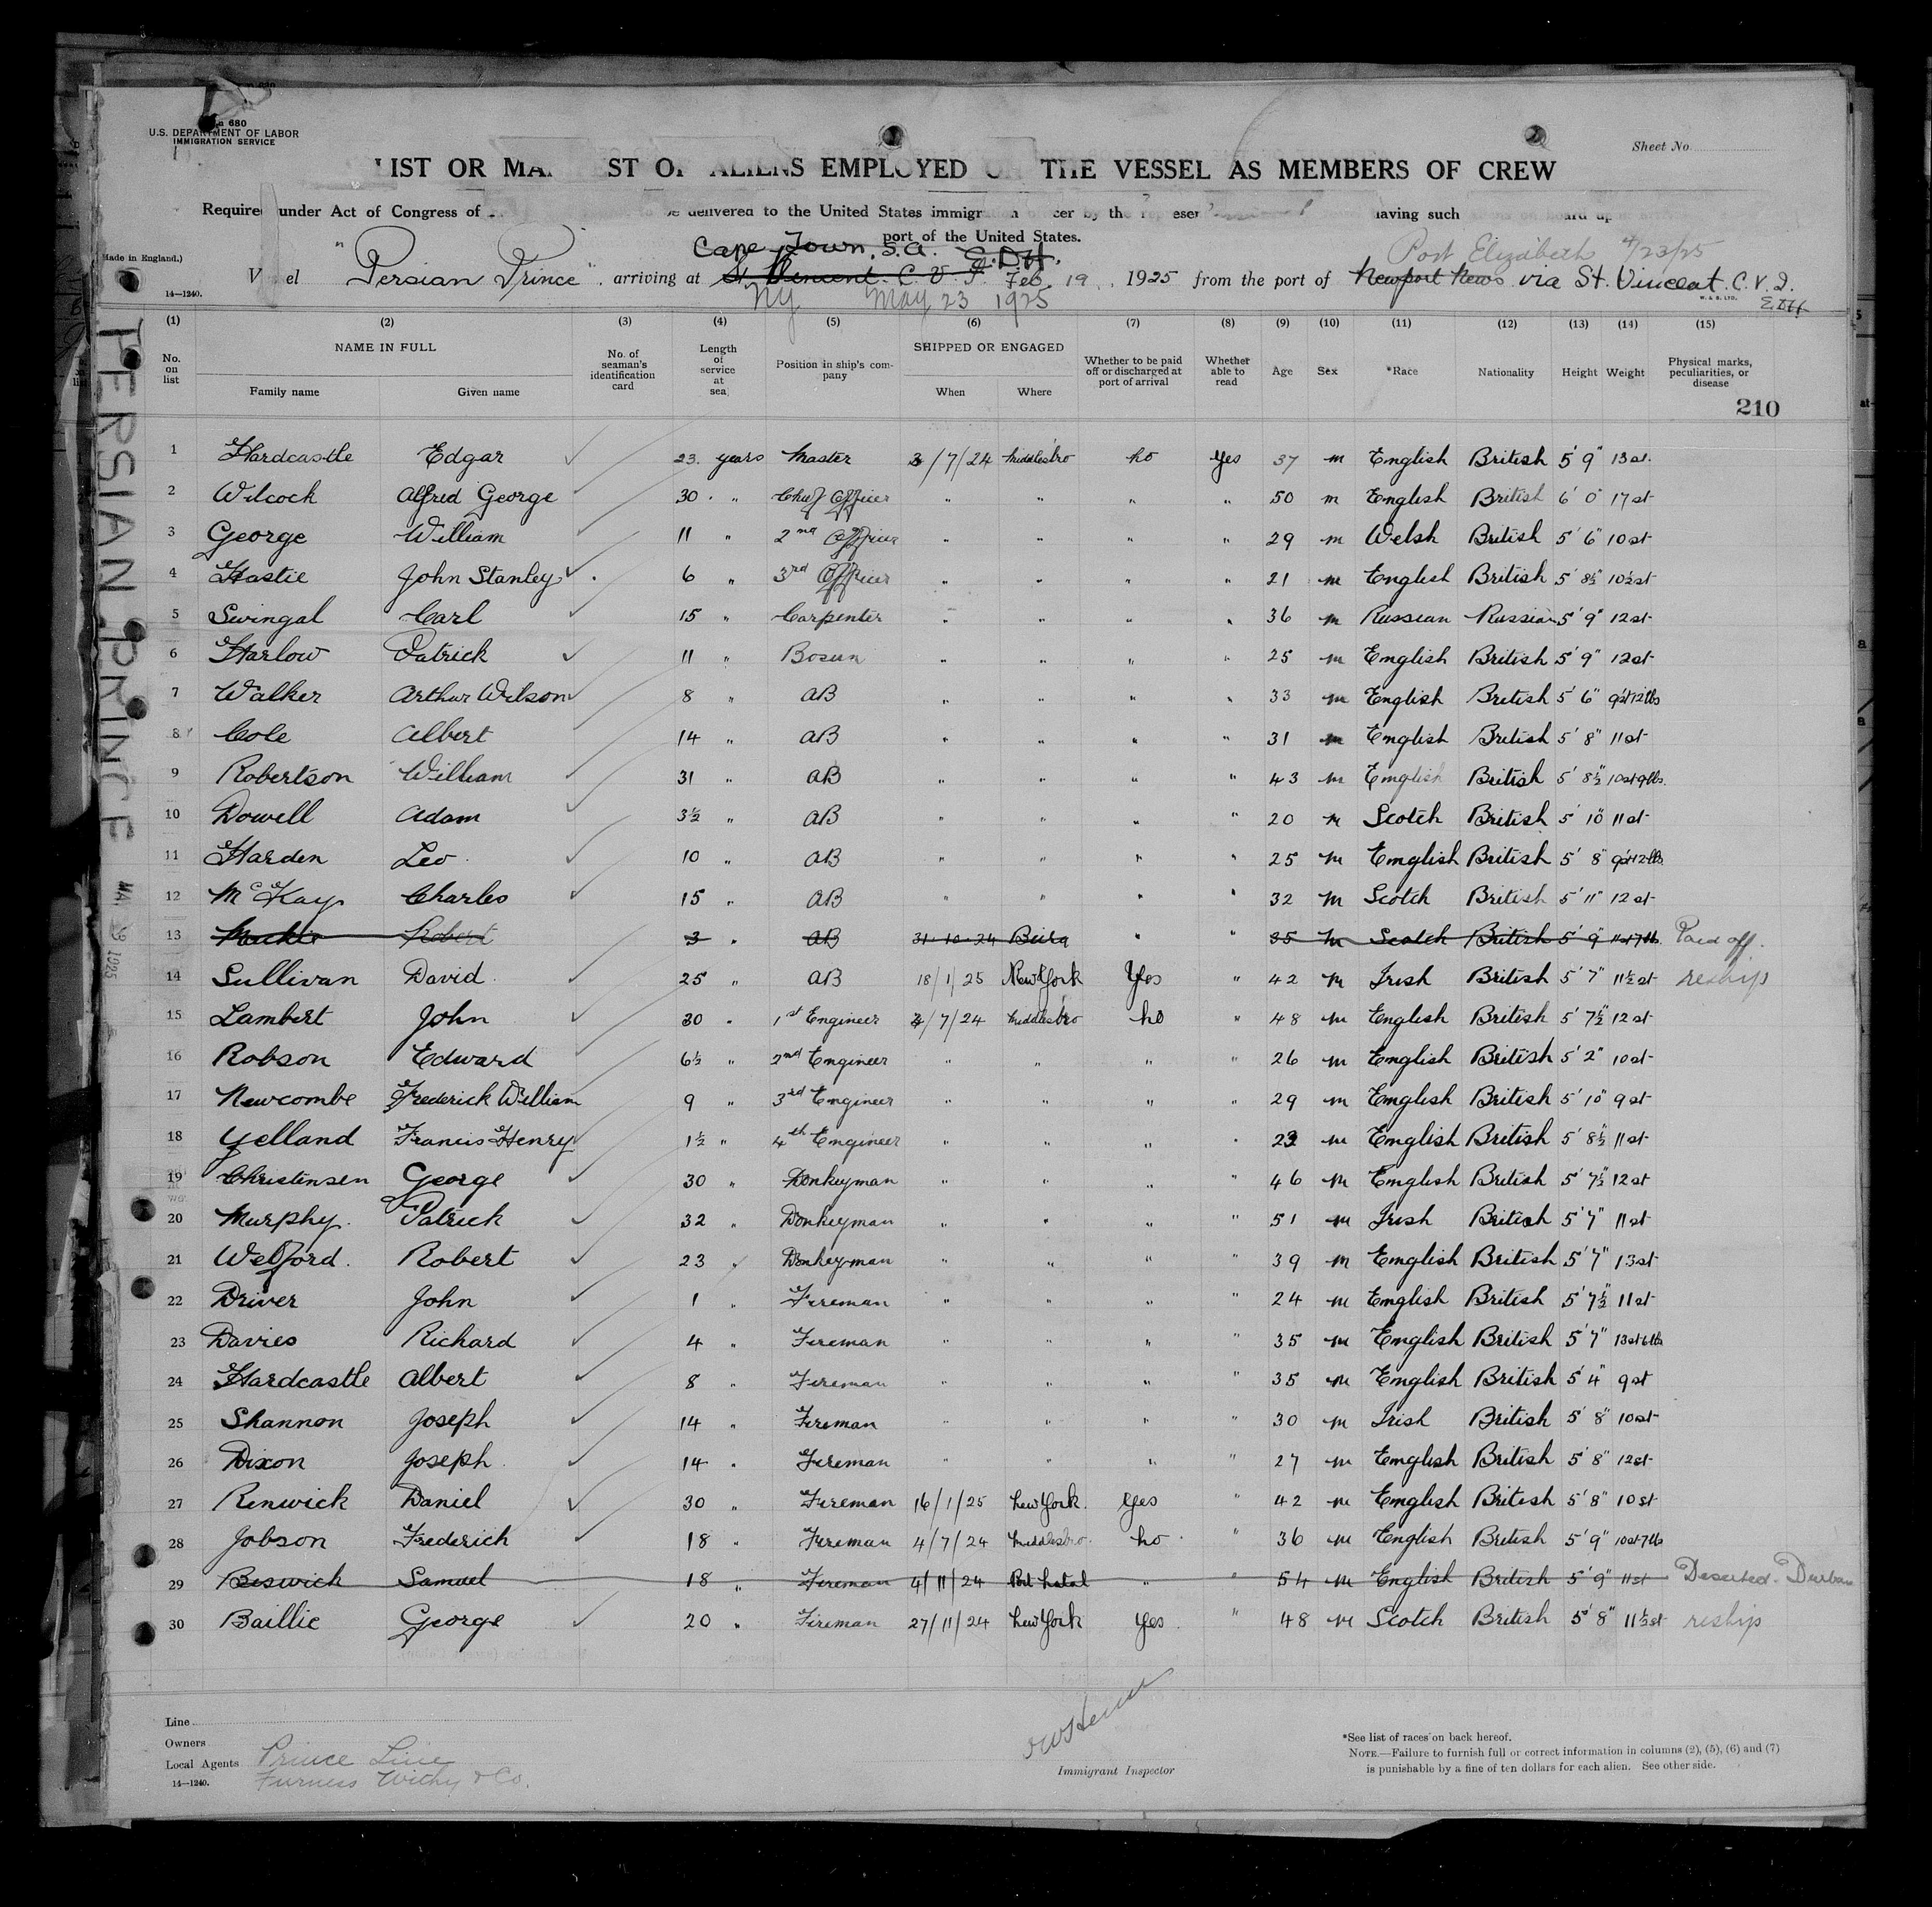 680
U.S. DEPARTMENT OF LABOR
IMMIGRATION SERVICE
Sheet No.
LIST OR MANIFEST OF ALIENS EMPLOYED ON THE VESSEL AS MEMBERS OF CREW
Required under Act of Congress of be delivered to the United States immigration officer by the having such
port of the United States.
Cape Town, S.A. E.D.H. Port Elizabeth 4/23/25
(Made in England.)
Vessel "Persian Prince", arriving at St Vincent C. V. I. Feb. 19, 1925 from the port of Newport News via St. Vincent. C. V. I.
14—1240.
NY May 23 1925
W. & S. LTD.
E.D.H.
(1) (2) (3) (4) (5) (6) (7) (8) (9) (10) (11) (12) (13) (14) (15)
No. on list NAME IN FULL Family name Given name No. of seaman's identification card Length of service at sea Position in ship's company SHIPPED OR ENGAGED When Where Whether to be paid off or discharged at port of arrival Whether able to read Age Sex *Race Nationality Height Weight Physical marks, peculiarities, or disease
210
PERSIAN PRINCE
1 Hardcastle Edgar 23 years Master 3/7/24 Middlesbro No Yes 37 M English British 5' 9" 13 st.
2 Wilcock Alfred George 30 " Chief Officer " " " " 50 M English British 6' 0" 17 st
3 George William 11 " 2nd Officer " " " " 29 M Welsh British 5' 6" 10 st
4 Hastie John Stanley 6 " 3rd Officer " " " " 21 M English British 5' 8½" 10½ st
5 Swingal Carl 15 " Carpenter " " " " 36 M Russian Russian 5' 9" 12 st
6 Harlow Patrick 11 " Bosun " " " " 25 M English British 5' 9" 12 st
7 Walker Arthur Wilson 8 " AB " " " " 33 M English British 5' 6" 9st 12 lbs
8 Cole Albert 14 " AB " " " " 31 M English British 5' 8" 11 st
9 Robertson William 31 " AB " " " " 43 M English British 5' 8½" 10st 9 lbs.
10 Dowell Adam 3½ " AB " " " " 20 M Scotch British 5' 10" 11 st
11 Harden Leo 10 " AB " " " " 25 M English British 5' 8" 9st 12 lbs.
12 McKay Charles 15 " AB " " " " 32 M Scotch British 5' 11" 12 st
13 Robert 3 " AB 31-10-24 Beira " " 35 M Scotch British 5' 9" 11st 7 lb. Paid off.
14 Sullivan David 25 " AB 18/1/25 New York Yes " 42 M Irish British 5' 7" 11½ st reship
15 Lambert John 30 " 1st Engineer 3/7/24 Middlesbro No " 48 M English British 5' 7½" 12 st
16 Robson Edward 6½ " 2nd Engineer " " " " 26 M English British 5' 2" 10 st
17 Newcombe Frederick William 9 " 3rd Engineer " " " " 29 M English British 5' 10" 9 st
18 Yelland Francis Henry 1½ " 4th Engineer " " " " 23 M English British 5' 8½" 11 st
19 Christensen George 30 " Donkeyman " " " " 46 M English British 5' 7½" 12 st
20 Murphy Patrick 32 " Donkeyman " " " " 51 M Irish British 5' 7" 11 st
21 Welford Robert 23 " Donkeyman " " " " 39 M English British 5' 7" 13 st
22 Driver John 1 " Fireman " " " " 24 M English British 5' 7½" 11 st
23 Davies Richard 4 " Fireman " " " " 35 M English British 5' 7" 13st 6 lb
24 Hardcastle Albert 8 " Fireman " " " " 35 M English British 5' 4" 9 st
25 Shannon Joseph 14 " Fireman " " " " 30 M Irish British 5' 8" 10 st
26 Dixon Joseph 14 " Fireman " " " " 27 M English British 5' 8" 12 st
27 Renwick Daniel 30 " Fireman 16/1/25 New York. Yes " 42 M English British 5' 8" 10 st
28 Jobson Frederich 18 " Fireman 4/7/24 Middlesbro. No " 36 M English British 5' 9" 10st 7 lb
29 Beswick Samuel 18 " Fireman 4/11/24 Port Natal " " 54 M English British 5' 9" 11 st Deserted. Durban
30 Baillie George 20 " Fireman 27/11/24 New York Yes " 48 M Scotch British 5' 8" 11½ st reship
Line
Owners
Local Agents Prince Line
Furness Withy & Co.
14—1240.
Immigrant Inspector
*See list of races on back hereof.
NOTE.—Failure to furnish full or correct information in columns (2), (5), (6) and (7)
is punishable by a fine of ten dollars for each alien. See other side.